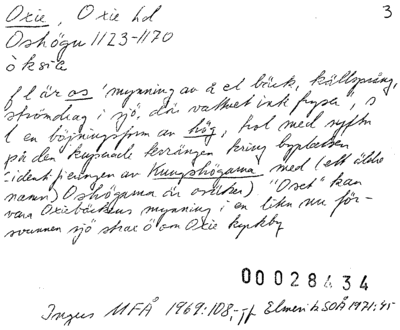 Oxie, Oxie hd 3
Oshögu 1123-1170
òksıe
fl är os 'mynning av å el bäck, källsprång,
strömdrag i sjö, där vattnet ink fryser', s
l en böjningsform av hög, trol med syftn
på den kuperade terrängen kring byplatsen
(identifieringen av Kungshögarna med (ett äldre
namn) Oshögarna är osäker) "Oset" kan
vara Oxiebäckens mynning i en liten nu för-
svunnen sjö strax ö om Oxie kyrkby
00028434
Ingers MFÅ 1969:108, jf Elmevik SOÅ 1971:45